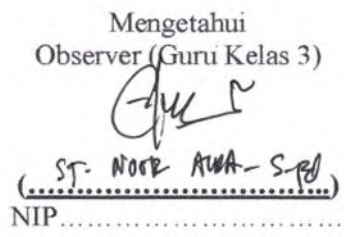 Mengetahui
Observer (Guru Kelas 3)
ST. NOOR - S.Pd
(..............................)
NIP..............................